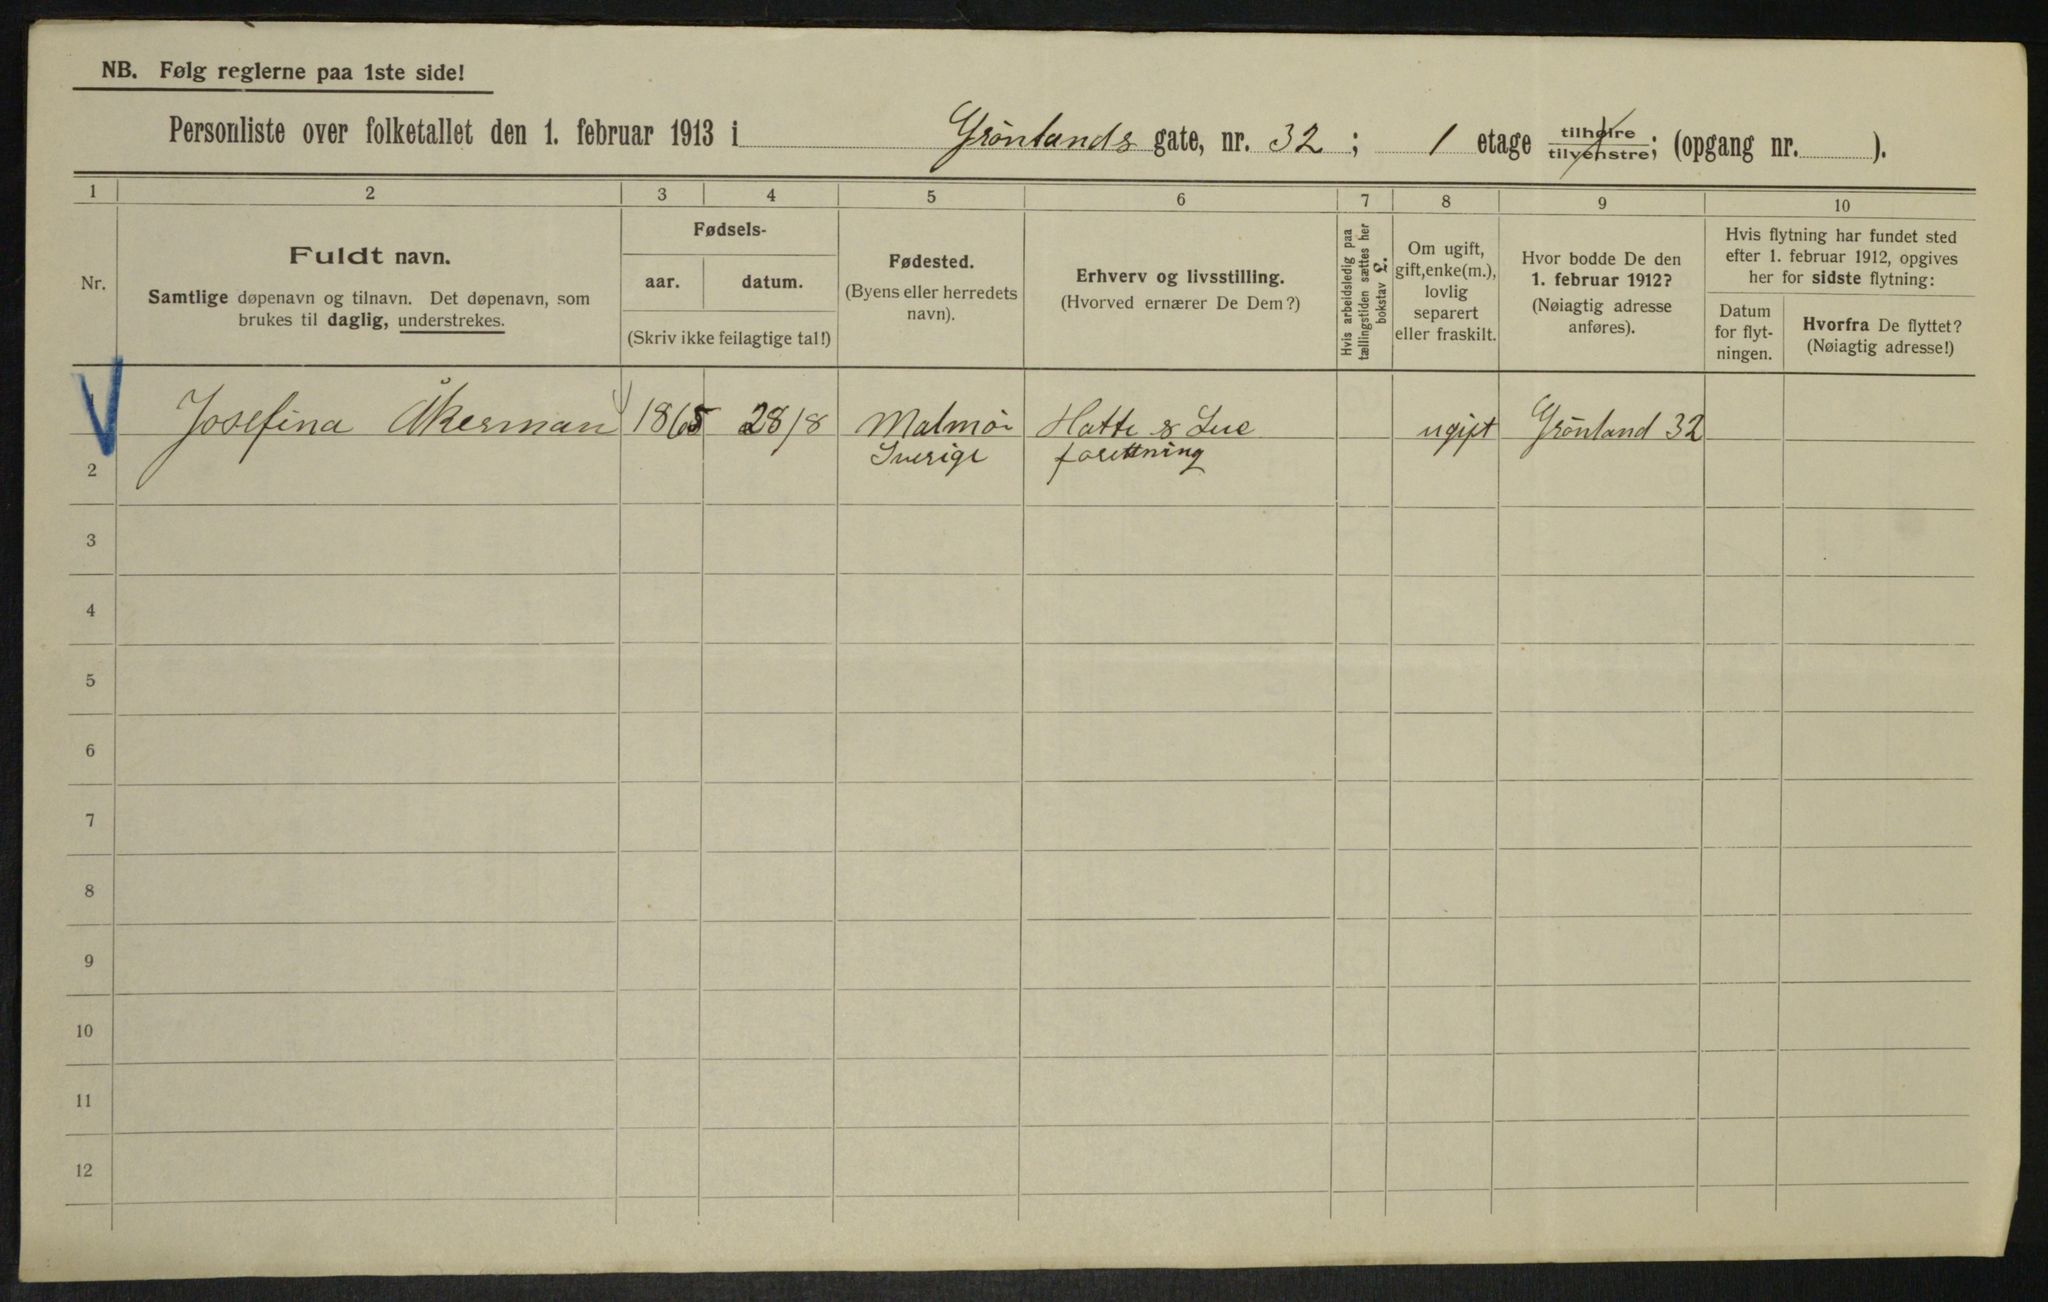 NB. Følg reglerne paa 1ste side!
Personliste over folketallet den 1. februar 1913 i Grönlands gate, nr. 32; 1 etage tilhøire/tilvenstre; (opgang nr. ).
1 2 3 4 5 6 7 8 9 10
Nr.
Fuldt navn.
Samtlige døpenavn og tilnavn. Det døpenavn, som
brukes til daglig, understrekes.
Fødsels-
aar. datum.
(Skriv ikke feilagtige tal!)
Fødested.
(Byens eller herredets
navn).
Erhverv og livsstilling.
(Hvorved ernærer De Dem?)
Hvis arbeidsledig paa
tællingstiden sættes her
bokstav L.
Om ugift,
gift, enke(m.),
lovlig
separert
eller fraskilt.
Hvor bodde De den
1. februar 1912?
(Nøiagtig adresse
anføres).
Hvis flytning har fundet sted
efter 1. februar 1912, opgives
her for sidste flytning:
Datum
for flyt-
ningen.
Hvorfra De flyttet?
(Nøiagtig adresse!)
1 Josefina Åkerman 1865 28/8 Malmö Hatte & ugift Grönland 32
Sverige foretning
2
3
4
5
6
7
8
9
10
11
12